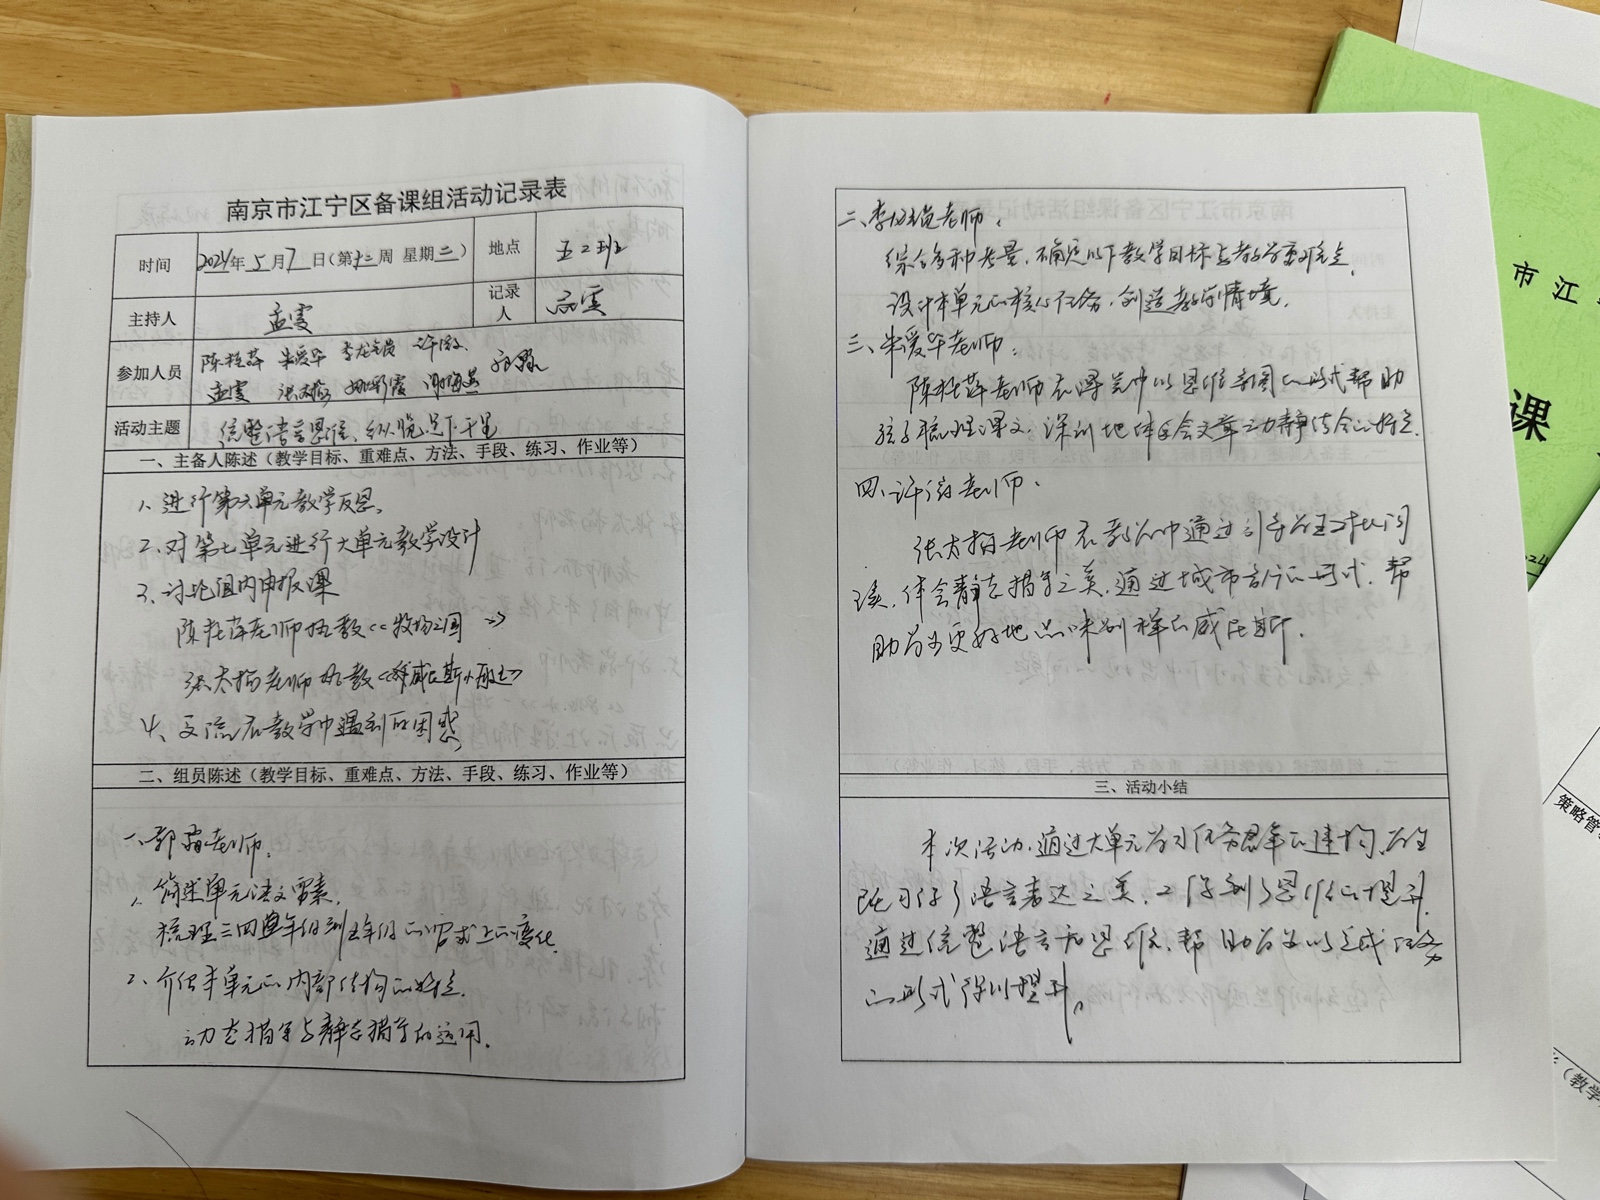 南京市江宁区备课组活动记录表
时间 2024年5月7日(第十二周 星期二) 地点 五2班
主持人 孟雯 记录人
参加人员 陈桂萍 朱爱华 许微
孟雯
活动主题 统整语言思维、纵览足下千里
一、主备人陈述(教学目标、重难点、方法、手段、练习、作业等)
1、进行第六单元教学反思。
2、对第七单元进行大单元教学设计
3、讨论组内申报课
陈桂萍老师执教《牧场之国》
张老师执教《威尼斯小艇》
4、交流在教学中遇到的困惑
二、组员陈述(教学目标、重难点、方法、手段、练习、作业等)
一、老师:
1、简述单元语文要素。
梳理三四年级到五年级的内容或上的变化
2、介绍本单元的内部结构的特点。
动态描写与静态描写的运用。
二、老师:
综合多种考量,确定以下教学目标与教学重难点。
设计本单元的核心任务,创造教学情境。
三、朱爱华老师:
陈桂萍老师在课堂中以思维导图的形式帮助
孩子梳理课文,深刻地体会文章动静结合的特点。
四、许微老师:
张老师在教学中通过引导学生对比阅
读,体会静态描写之美,通过城市的形式,帮
助学生更好地品味别样的威尼斯。
三、活动小结
本次活动,通过大单元学习任务群的建构,学生
既习得了语言表达之美,又得到了思维的提升。
通过统整语言和思维,帮助学生以完成任务
的形式得以提升。
市江
课
2024
策略管
(教学